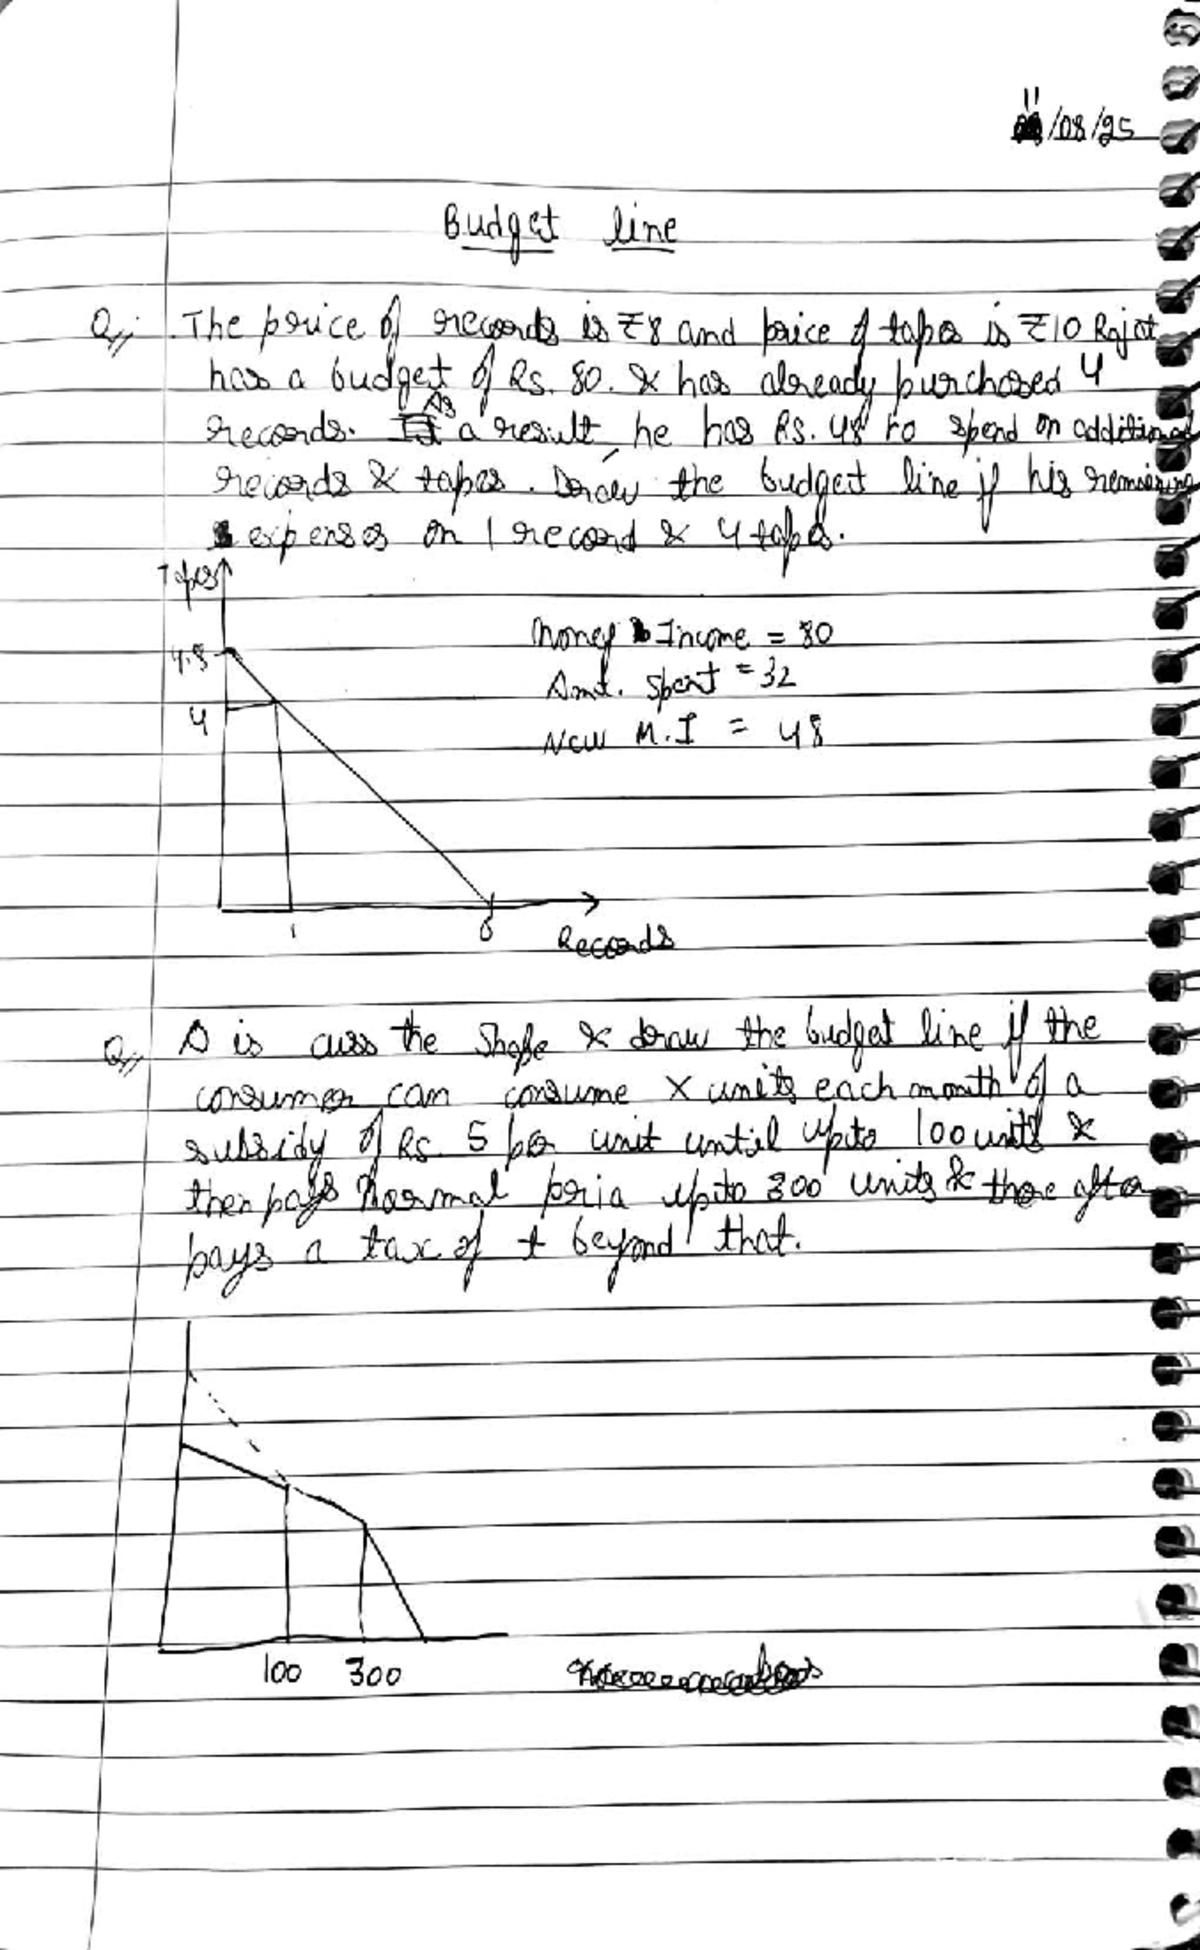 11/08/25
Budget line
Q// The price of records is ₹8 and price of tapes is ₹10 Rajat
has a budget of Rs. 80. & has already purchased 4
records. As a result he has Rs. 48 to spend on additional
records & tapes. Draw the budget line if his remaining
expenses on 1 record & 4 tapes.
Tapes
4.8
4
Money Income = 80
Amt. spent = 32
New M.I = 48
1
6
Records
Q// Discuss the Shape & draw the budget line if the
consumer can consume X units each month of a
subsidy of Rs. 5 per unit until upto 100 units &
then pays Normal upto 300 units & there after
pays a tax of t beyond that.
100 300